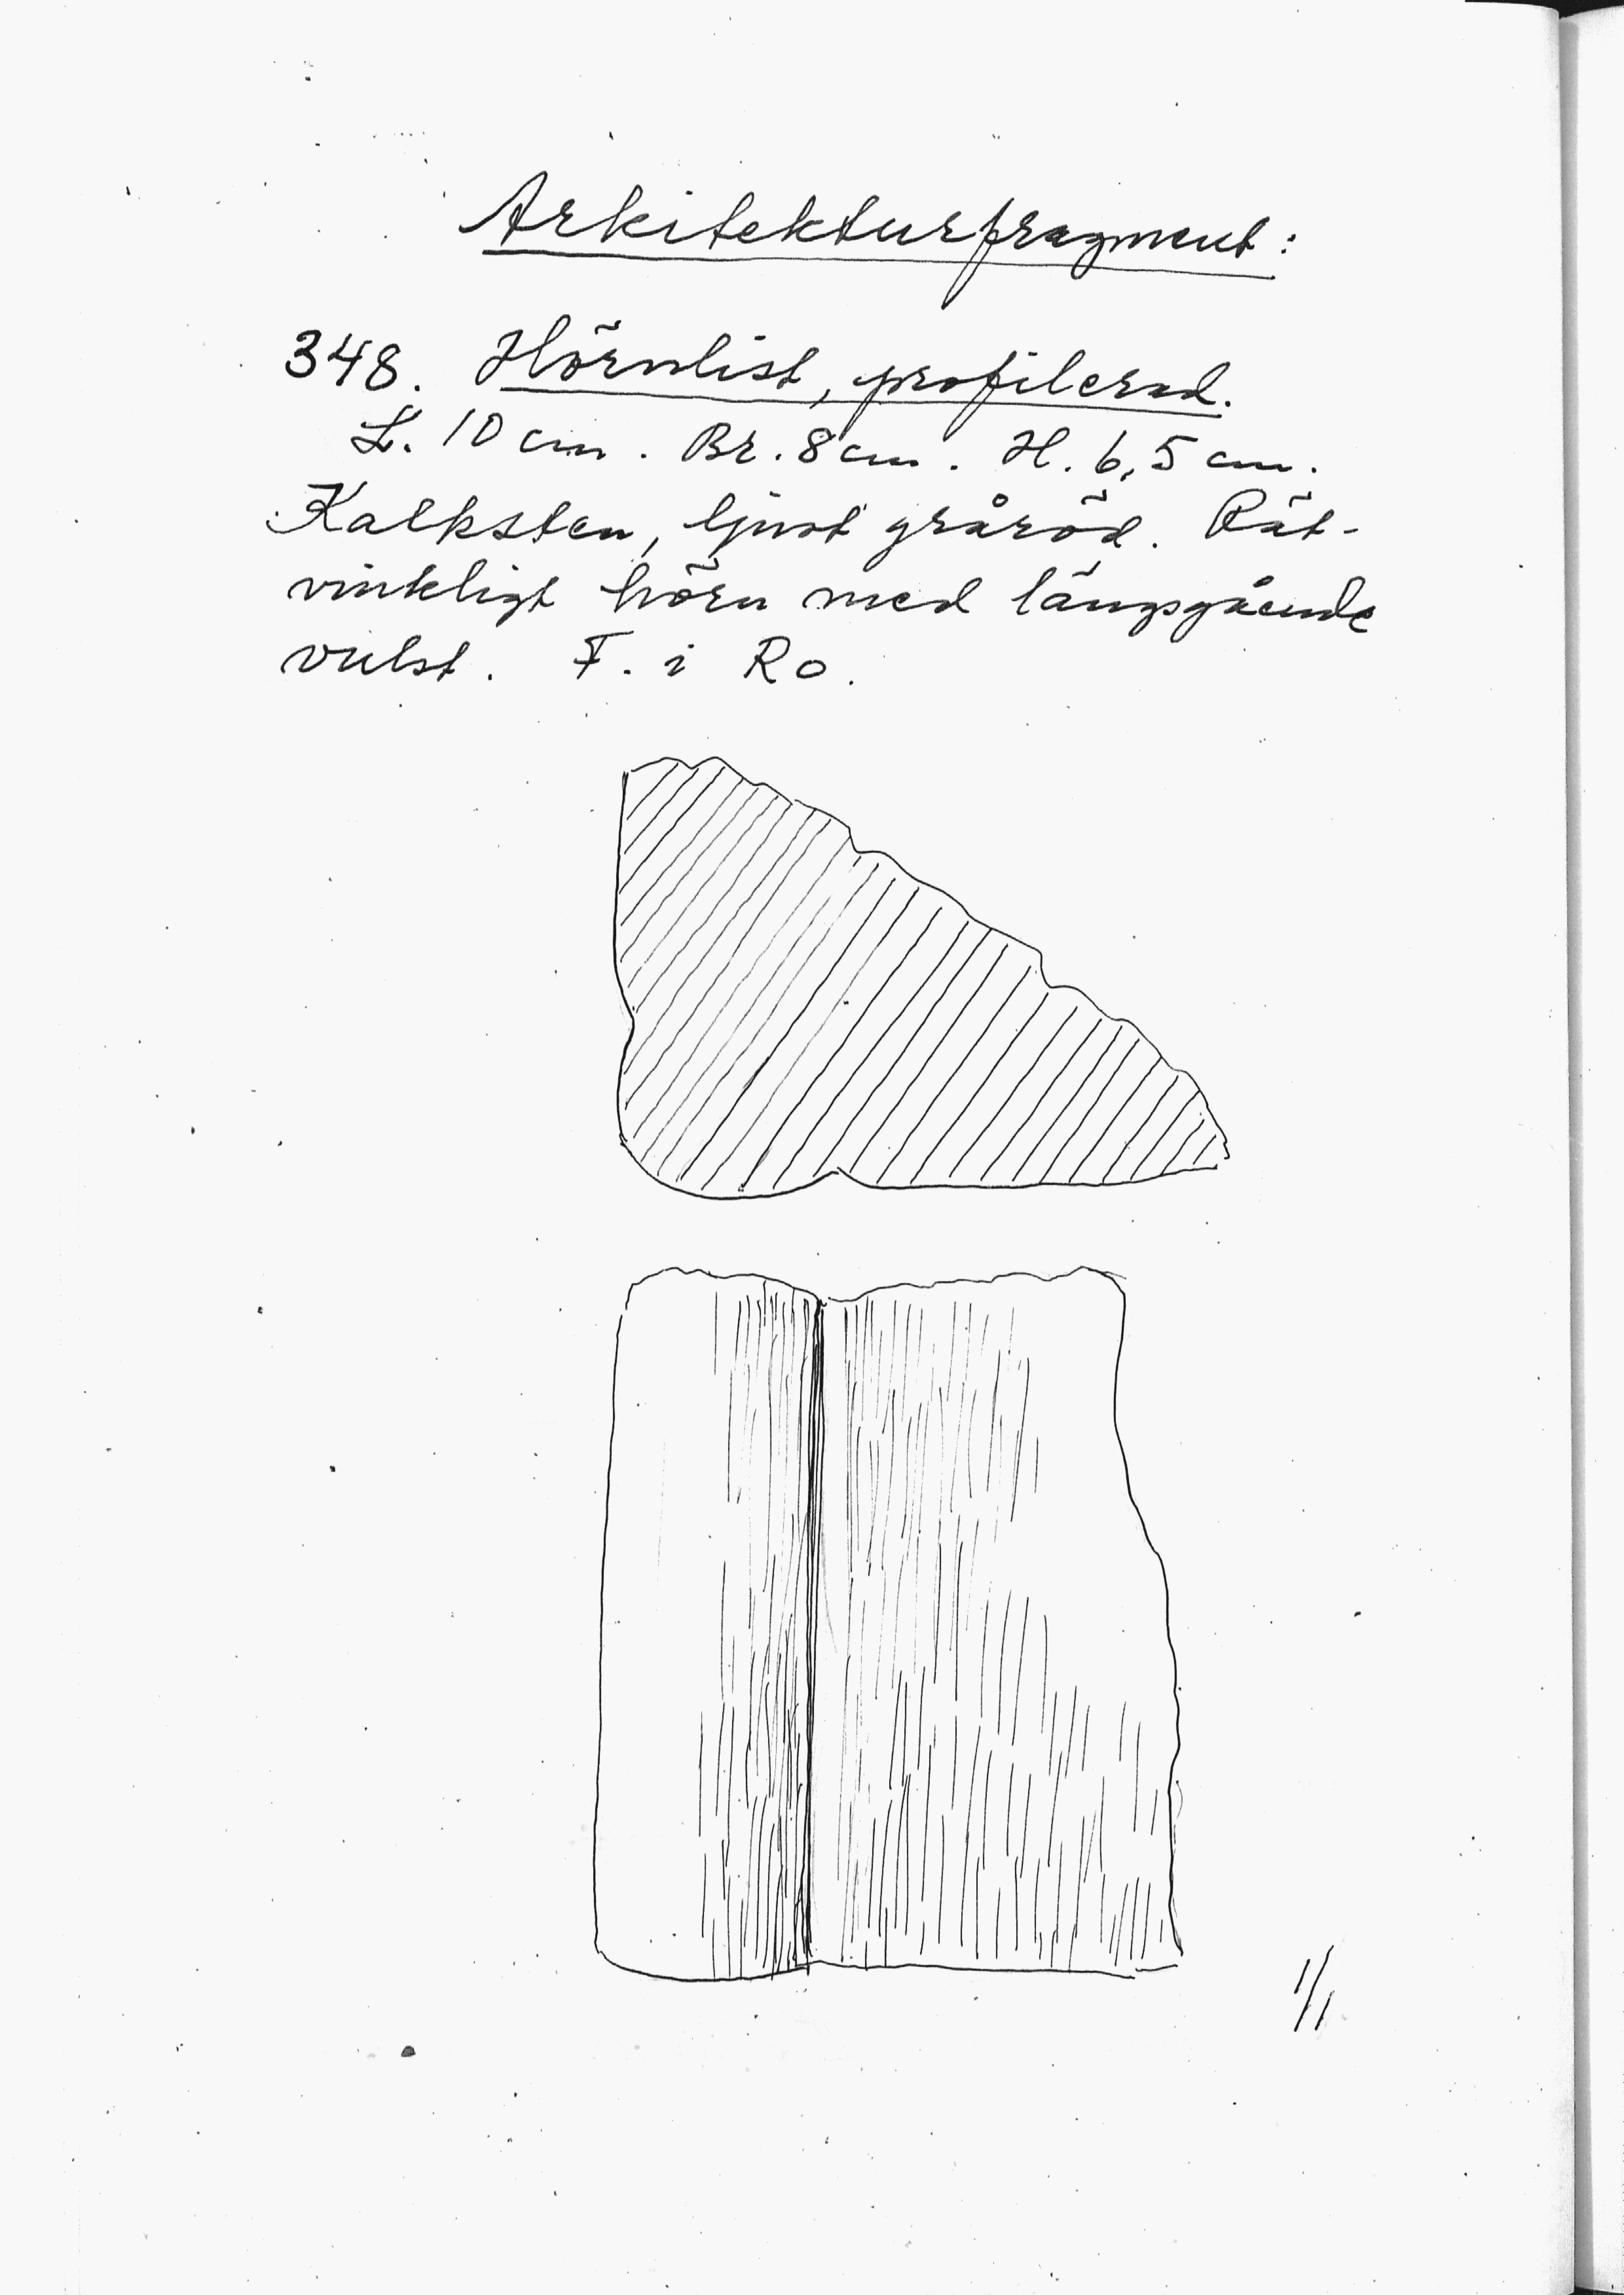 Arkitekturfragment:
348. Hörnlist, profilerad.
L. 10 cm. Br. 8 cm. H. 6,5 cm.
Kalksten, ljust gråröd. Rät-
vinkligt hörn med längsgående
vulst. F. i Ro.
1/1